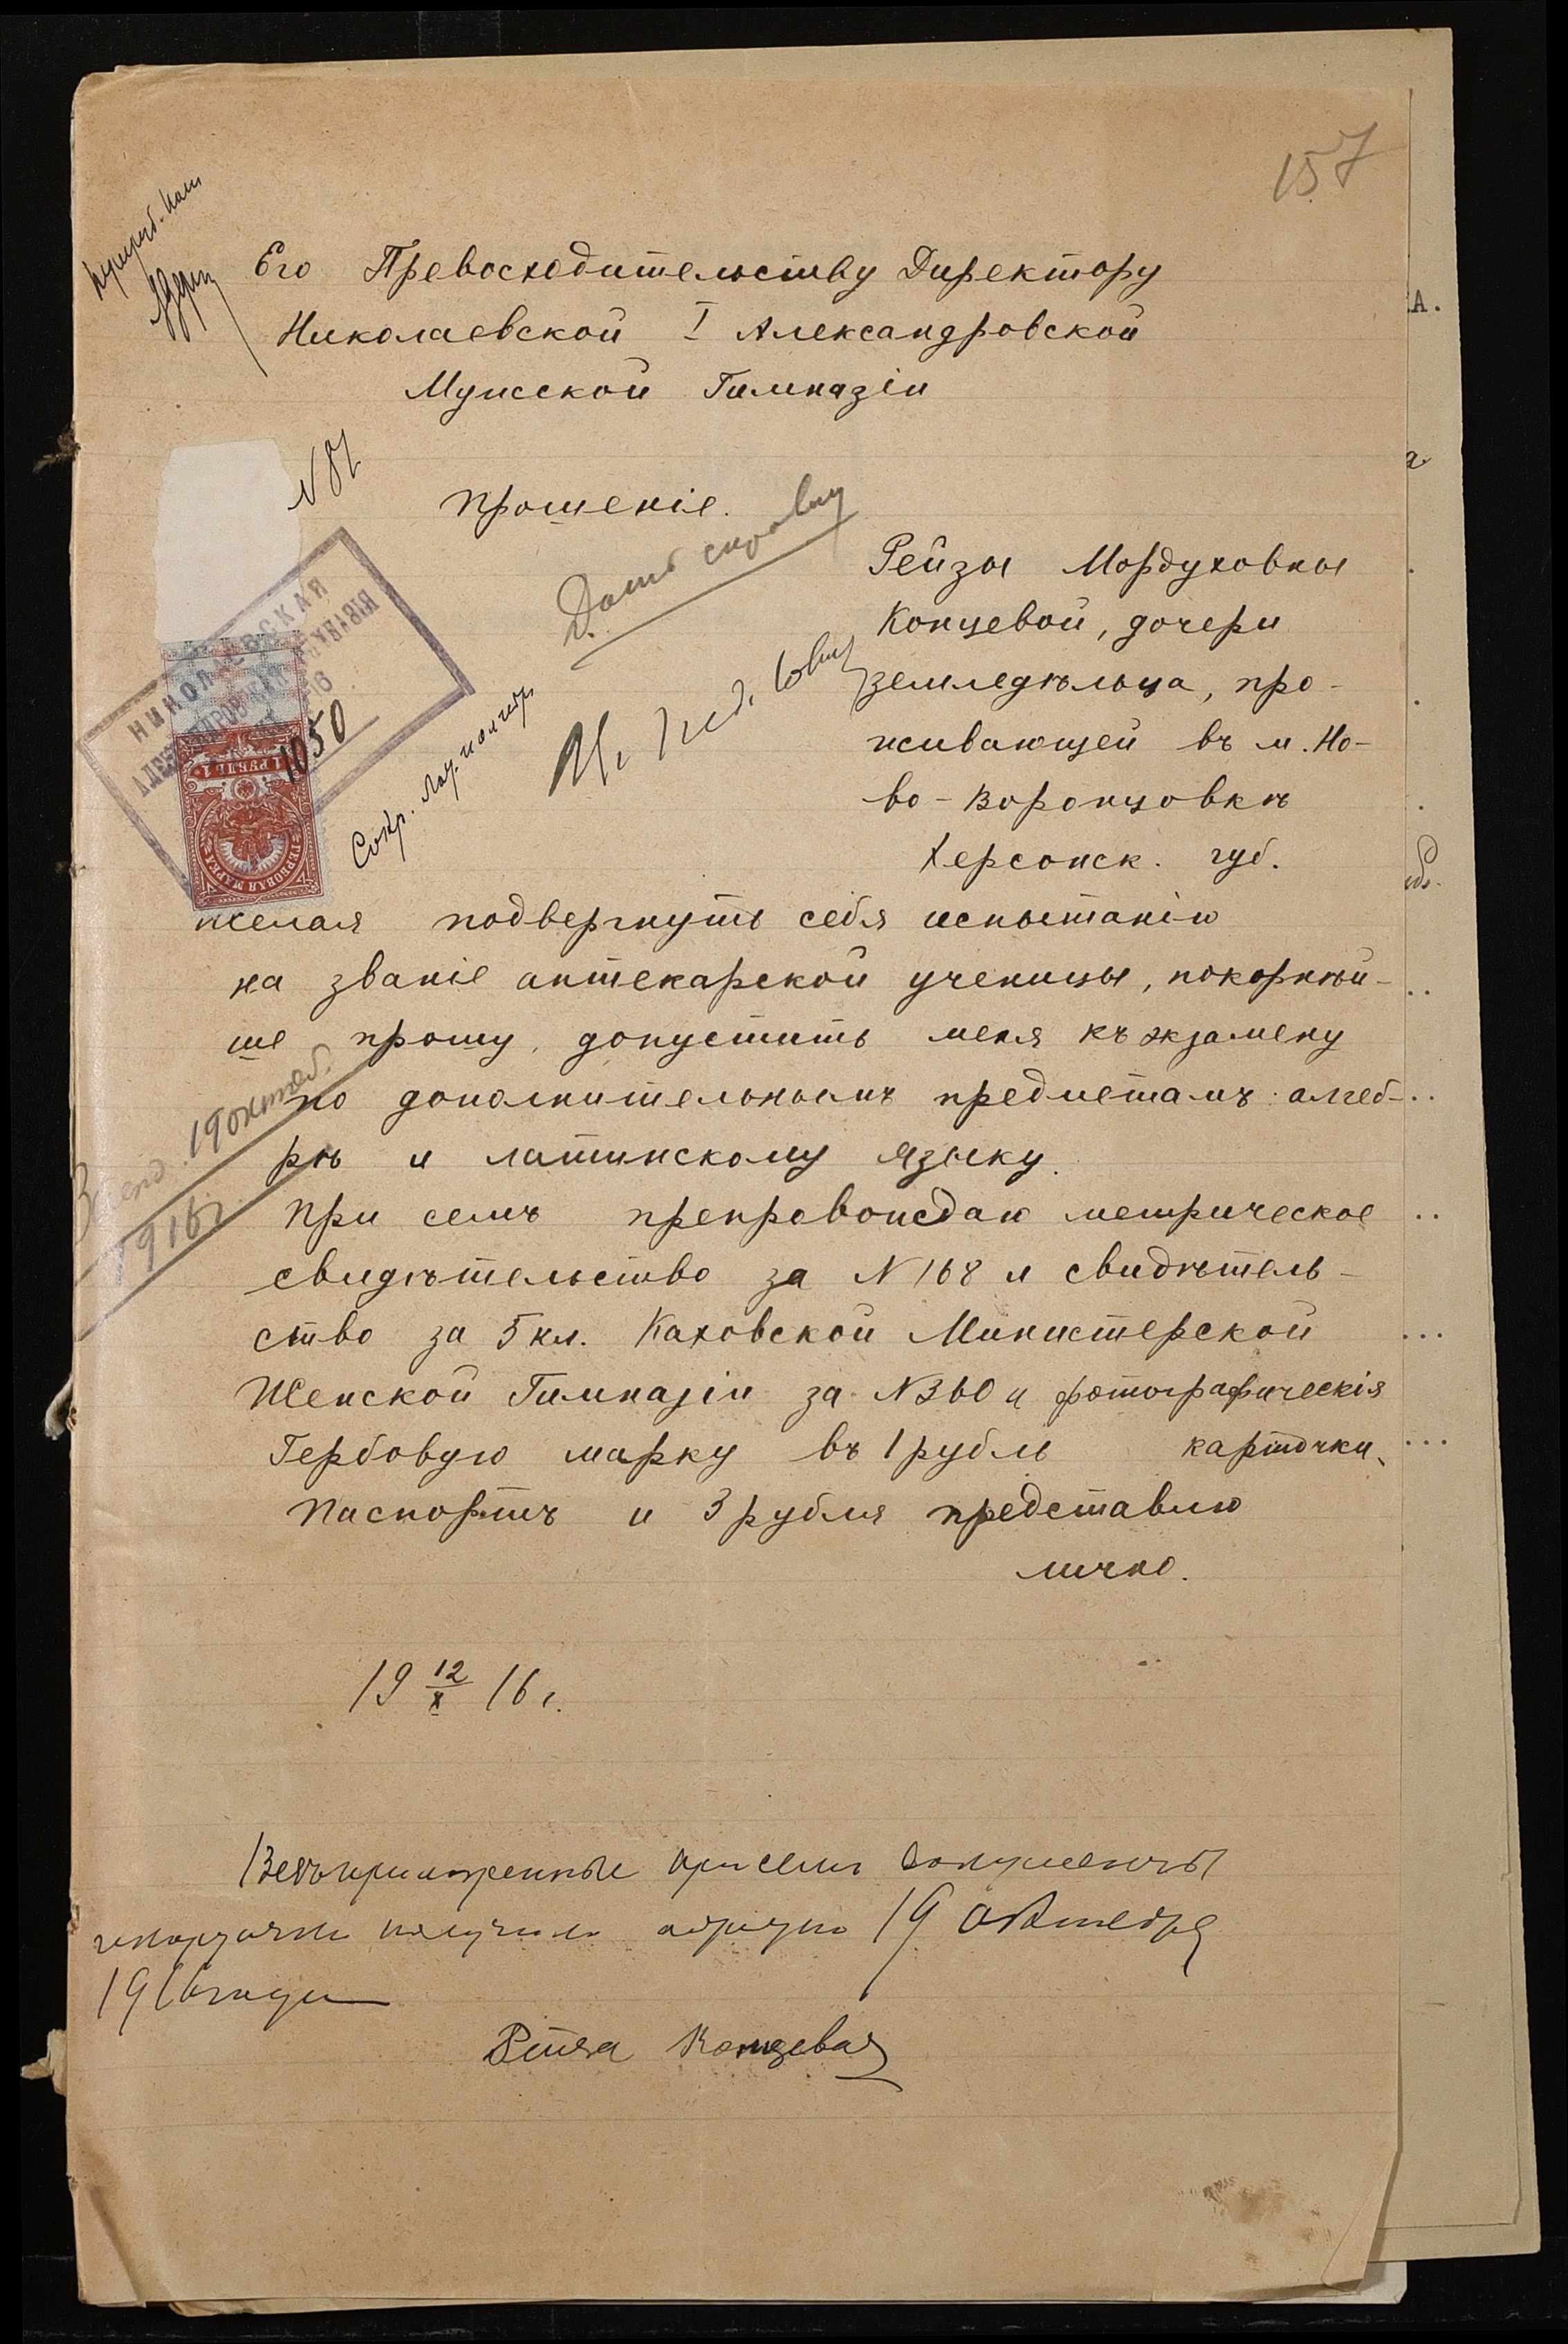 157
Его Превосходительству Директору
Николаевской I Александровской
Мужской Гимназіи
N 87
Прошеніе.
Дать справку
Рейзы Мордуховны
Концевой, дочери
земледѣльца, про-
живающей въ м. Но-
во-Воронцовкѣ
Херсонск. губ.
НИКОЛАЕВСКАЯ
1050
1 РУБЛЬ 1
ГЕРБОВАЯ МАРКА
желая подвергнуть себя испытанію
на званіе аптекарской ученицы, покорнѣй-
ше прошу допустить меня къ экзамену
по дополнительнымъ предметамъ: алгеб-
рѣ и латинскому языку.
19 октяб.
1916 г.
При семъ препровождаю метрическое
свидѣтельство за N 168 и свидѣтель-
ство за 5 кл. Каховской Министерской
Женской Гимназіи за N 360 и фотографическія
Гербовую марку въ 1 рубль карточки.
Паспортъ и 3 рубля представлю
лично.
19 12/X 16 г.
приложенные при семъ документы
получила обратно 19 октября
1916 года
Рейза Концевая